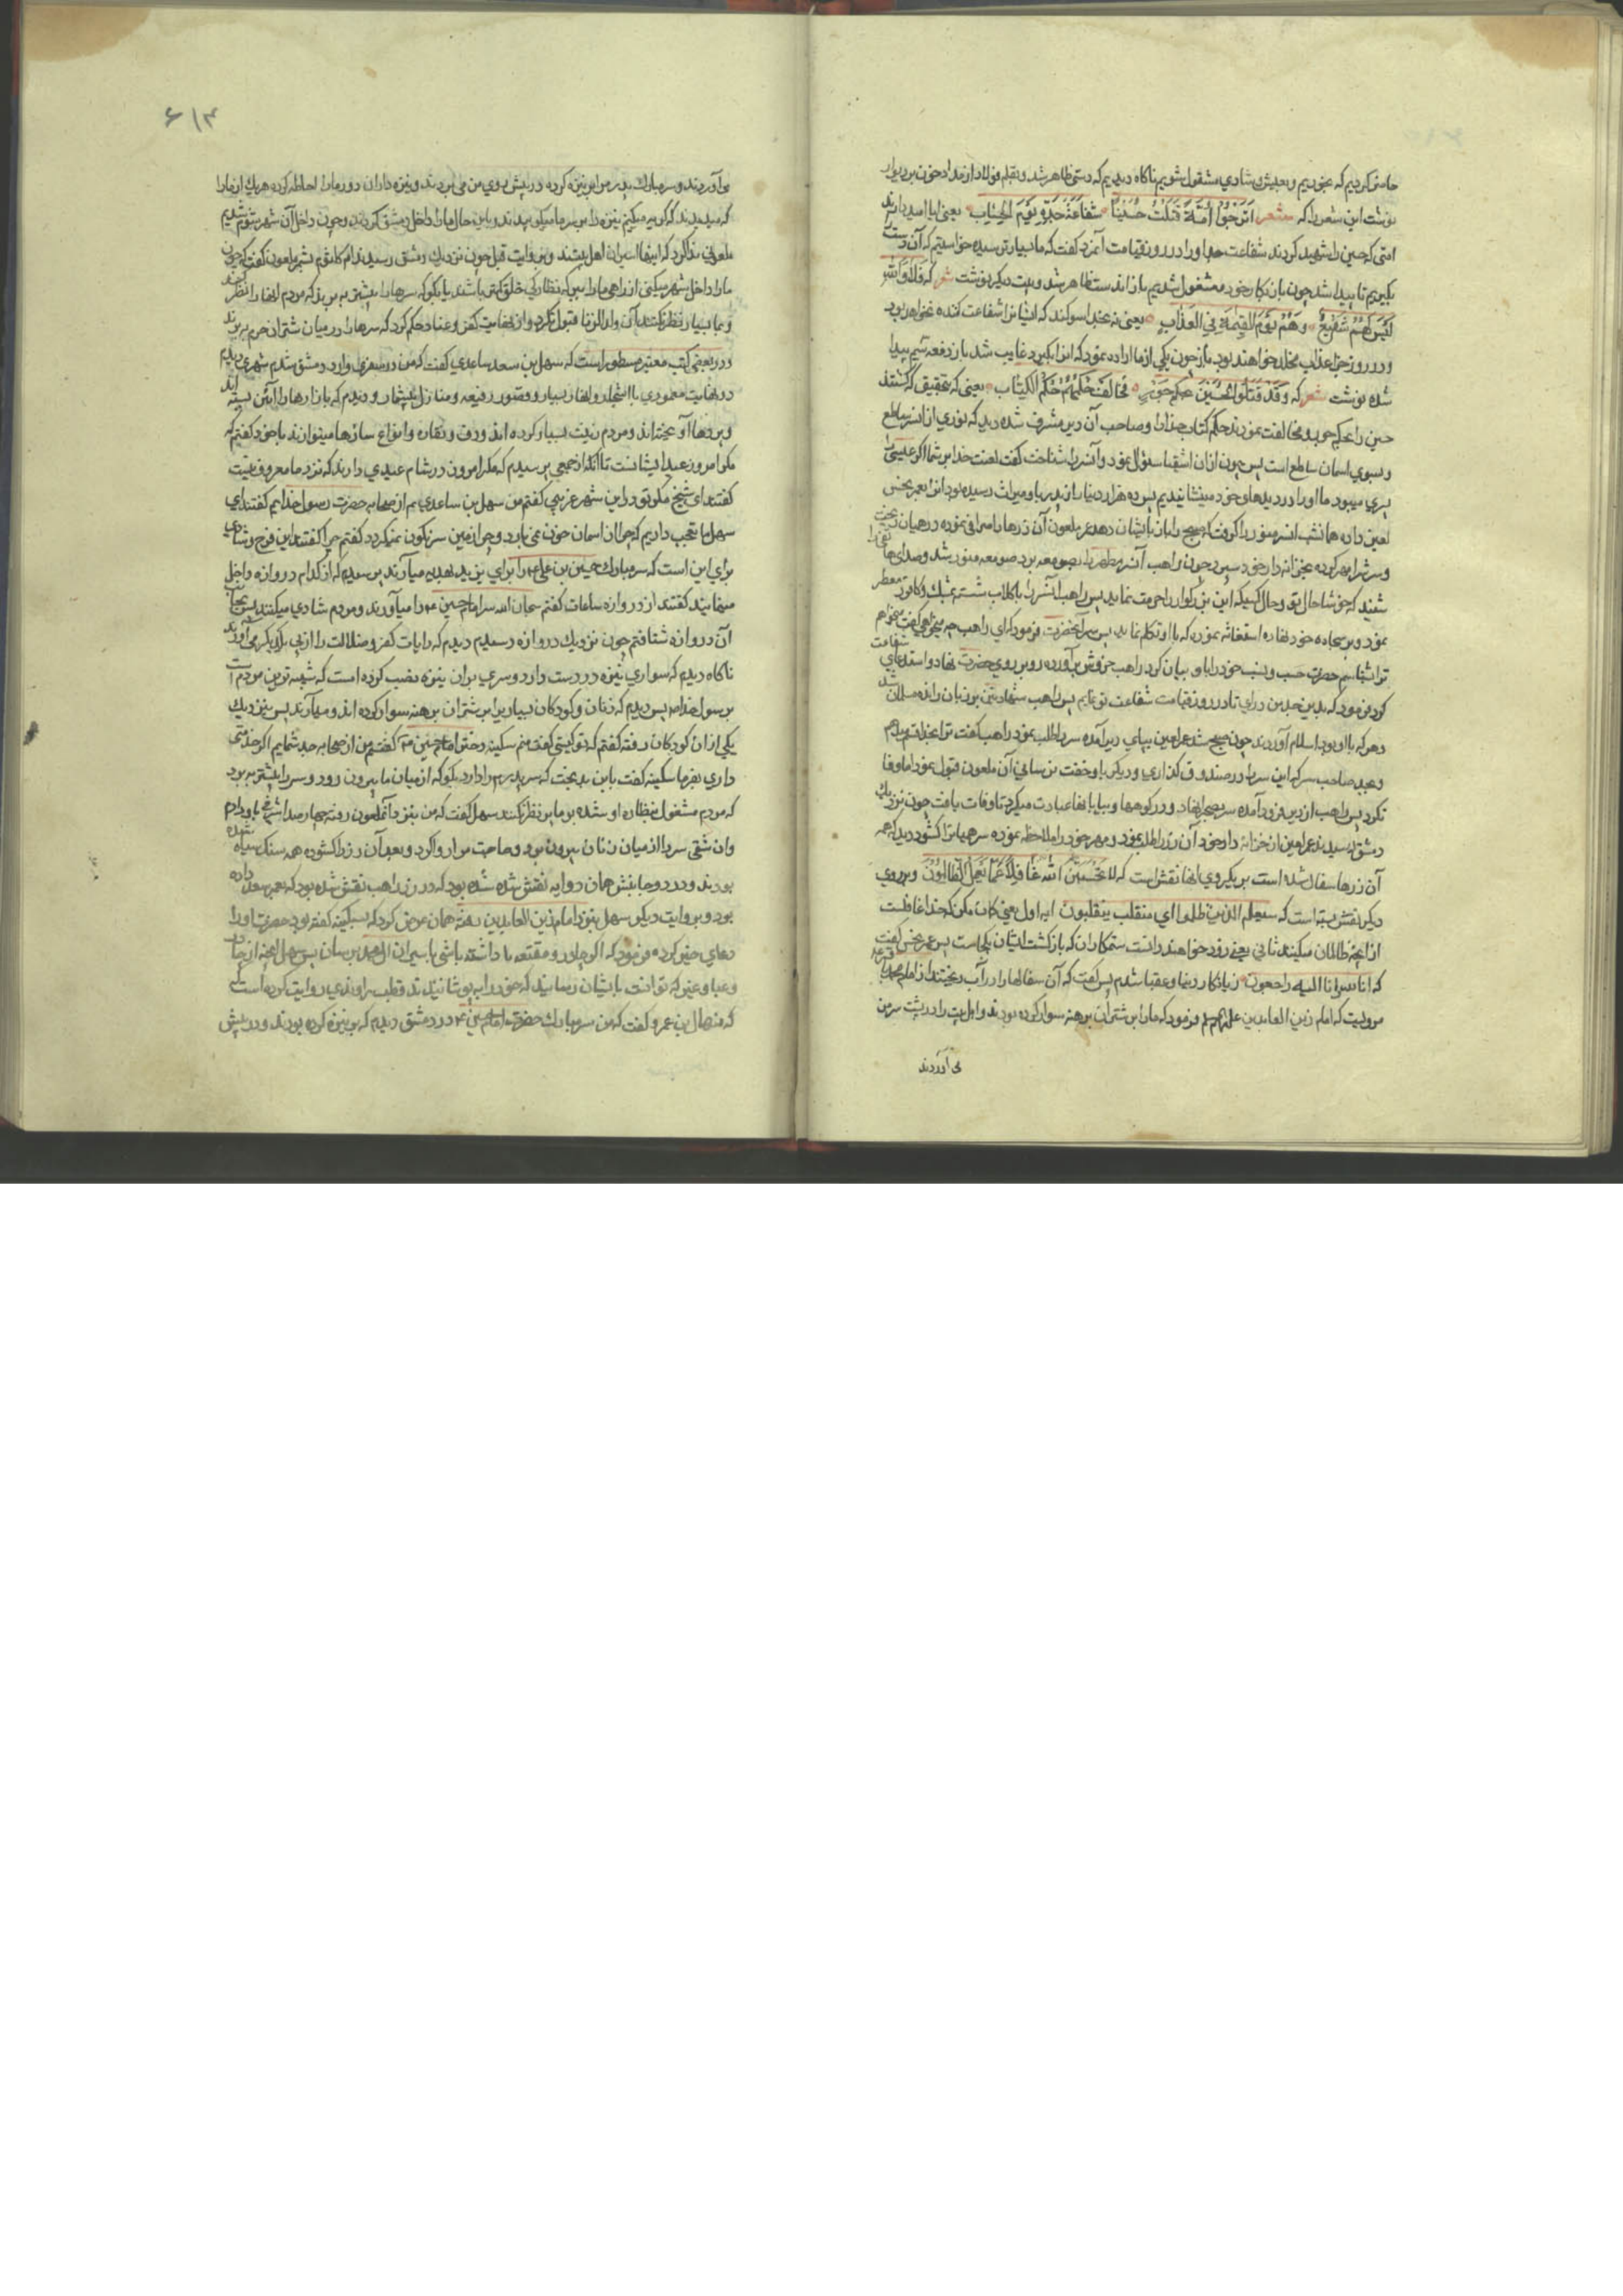 حاضر کردیم که بخوریم و بعیش و شادی مشغول شویم ناکاه دیدیم که دستی ظاهر شد و بقلم فولاد از مداد خون بر دیوار
نوشت این شعر را که شعر اترجوا امة قتلت حسینا شفاعة جده یوم الحساب یعنی ایا امید دارند
امتی که حسین را شهید کردند شفاعت جد او را در روز قیامت آنمرد کفت که ما بسیار ترسیده خواستیم که آن دست
بکیریم ناپیدا شد چون باز بکار خود مشغول شدیم باز اندست ظاهر شد و بیت دیکر نوشت شعر که فلا والله
لیس لهم شفیع وهم یوم القیمة فی العذاب یعنی نه بخدا سوکند که ایشانرا شفاعت کننده نخواهد بود
و در روز جزا در عذاب مخلد خواهند بود باز چون یکی از ما اراده نمود که انرا بکیرد غایب شد باز دفعه سیم پیدا
شده نوشت شعر که وقد قتلوا الحسین بحکم جور فخالف حکمهم حکم الکتاب یعنی که بتحقیق که کشتند
حسین را بحکم جور و مخالفت نمودند حکم کتاب خدا را و صاحب آن دیر مشرف شده دید که نوری از انسر ساطع
و بسوی اسمان ساطع است پس چون از ان اشقیا سئوال نمود و آنسر را شناخت کفت لعنت خدا بر شما اکر عیسی را
پسری میبود ما او را در دیدهای خود مینشانیدیم پس ده هزار دینار از پدر باو میراث رسیده بود انرا بعمر نحس
لعین داده همانشب انسر منور را کرفت که صبح را باز بایشان دهد عمر ملعون آن زرها را صرافی نموده در همیان ریخت
و سرش را مهر کرده بخزانه دار خود سپرد چون راهب آنسر مطهر را بصومعه برد صومعه منور شد و صدای هاتفی را
شنید که خوشا حال تو و حال کسیکه این بزرکوار را حرمت نماید پس راهب آنسر را با کلاب شسته بمشک و کافور معطر
نمود و بر سجاده خود نهاده استغاثه نموده که با او تکلم نماید پس سر آنحضرت فرمود که ای راهب چه میخواهی کفت میخواهم
ترا بشناسم حضرت حسب و نسب خود را باو بیان کرد راهب خروش برآورده رو بر روی حضرت نهاد و استدعای شفاعت
کرد فرمود که بدین جدم درای تا در روز قیامت شفاعت تو نمایم پس راهب شهادتین بر زبان رانده مسلمان شد
و هر که با او بود اسلام آوردند چون صبح شد عمر لعین بپای دیر آمده سر را طلب نمود راهب کفت
نکرد پس راهب از دیر فرود آمده سر بصحرا نهاد و در کوهها و بیابانها عبادت میکرد تا وفات یافت چون نزدیک
دمشق رسیدند عمر لعین از خزانه دار خود آن زر را طلب نمود و مهر خود را ملاحظه نموده سر همیانرا کشود دید که همه
آن زرها سفال شده است بر یکروی انها نقش است که لا تحسبن الله غافلا عما یعمل الظالمون و بر روی
دیکر نقش بسته است که سیعلم الذین ظلموا ای منقلب ینقلبون ایه اول یعنی کمان مکن که خدا غافلست
از انچه ظالمان میکنند ثانی یعنی زود خواهند دانست ستمکاران که بازکشت ایشان بکجاست پس عمر نحس کفت
که انا لله و انا الیه راجعون زیانکار دنیا و عقبا شدم پس کفت که آن سفالها را در آب ریختند از امام محمد باقر
مرویست که امام زین العابدین علیهم السلم فرمود که ما را بر شتران برهنه سوار کرده بودند و اهل بیت را در پشت سر من
می آوردند
۶۱۳
می آوردند و سر مبارک پدر مرا بر نیزه کرده در پیش روی من می بردند و نیزه داران دور ما را احاطه کرده هر یک از ما را
که میدیدند که کریه میکنیم نیزه را بر سر ما میکوبیدند و باین حال ما را داخل دمشق کردند و چون داخل آن شهر شوم شدیم
ملعونی ندا کرد که اینها اسیران اهل بیتند و بروایت قبل چون نزدیک دمشق رسیدند ام کلثوم بشمر ملعون کفت که چون
ما را داخل شهر میکنی از راهی ما را ببر که نظارکی خلق کمتر باشند یا بکو که سرها را پیشتر به برند که مردم انها را نظر کنند
و بما بسیار نظر نکنند آن ولدالزنا قبول نکرد و از نهایت کفر و عناد حکم کرد که سرها را در میان شتران حرم به برند
و در بعضی کتب معتبره مسطور است که سهل بن سعد ساعدی کفت که من در سفری وارد دمشق شدم شهری دیدم
در نهایت معموری با اشجار و انهار بسیار و قصور رفیعه و منازل بیشمار و دیدم که بازارها را آئین بسته اند
و پردها آویخته اند و مردم زینت بسیار کرده اند و دف و نقاره و انواع سازها مینوازند با خود کفتم که
مکر امروز عید ایشانست تا آنکه از جمعی پرسیدم که مکر امروز در شام عیدی دارند که نزد ما معروف نیست
کفتند ای شیخ مکر تو در این شهر غریبی کفتم من سهل بن ساعدی ام از صحابه حضرت رسول خدایم کفتند ای
سهل ما تعجب داریم که چرا از اسمان خون نمی بارد و چرا زمین سرنکون نمیکردد کفتم چرا کفتند این فرح و شادی
برای این است که سر مبارک حسین بن علی را برای یزید بهدیه میآرند پرسیدم که از کدام دروازه داخل
مینمایند کفتند از دروازه ساعات کفتم سبحان الله سر امام حسین ع را میآورند و مردم شادی میکنند پس بجانب
آن دروازه شتافتم چون نزدیک دروازه رسیدم دیدم که رایات کفر و ضلالت را از پی یکدیکر می آورند
ناکاه دیدم که سواری نیزه در دست دارد و سری بران نیزه نصب کرده است که شبیه ترین مردم است
برسول خدا پس دیدم که زنان و کودکان بسیار بر شتران برهنه سوار کرده اند و میآرند پس بنزدیک
یکی از ان کودکان رفته کفتم که تو کیستی کفت منم سکینه دختر امام حسین ع کفتم من از صحابه جد شمایم اکر خدمتی
داری بفرما سکینه کفت باین بدبخت که سر پدرم را دارد بکو که از میان ما بیرون رود و سر را پیشتر به برد
که مردم مشغول بنظاره او شده بر ما نظر نکنند سهل کفت که من بنزد آنملعون رفته چهارصد اشرفی باو دادم
و ان شقی سر را از میان زنان بیرون برد و حاجت مرا روا کرد و بعد آن زر را کشوده همه سنک سیاه شده
بودند و در دو جانبش همان دو ایه نقش شده بود که در زر راهب نقش شده بود که بعمر سعد داده
بود و بروایت دیکر سهل بنزد امام زین العابدین رفته همان عرض کرد که بسکینه کفته بود حضرت او را
دعای خیر کرده فرمود که اکر چادر و مقنعه ها داشته باشی باسیران ال محمد برسان پس سهل انچه از چادر
و عبا و غیره که توانست بایشان رسانید که خود را به پوشانیدند قطب راوندی روایت کرده است
که منهال بن عمرو کفت که من سر مبارک حضرت امام حسین ع در دمشق دیدم که بر نیزه کرده بودند و در پیش